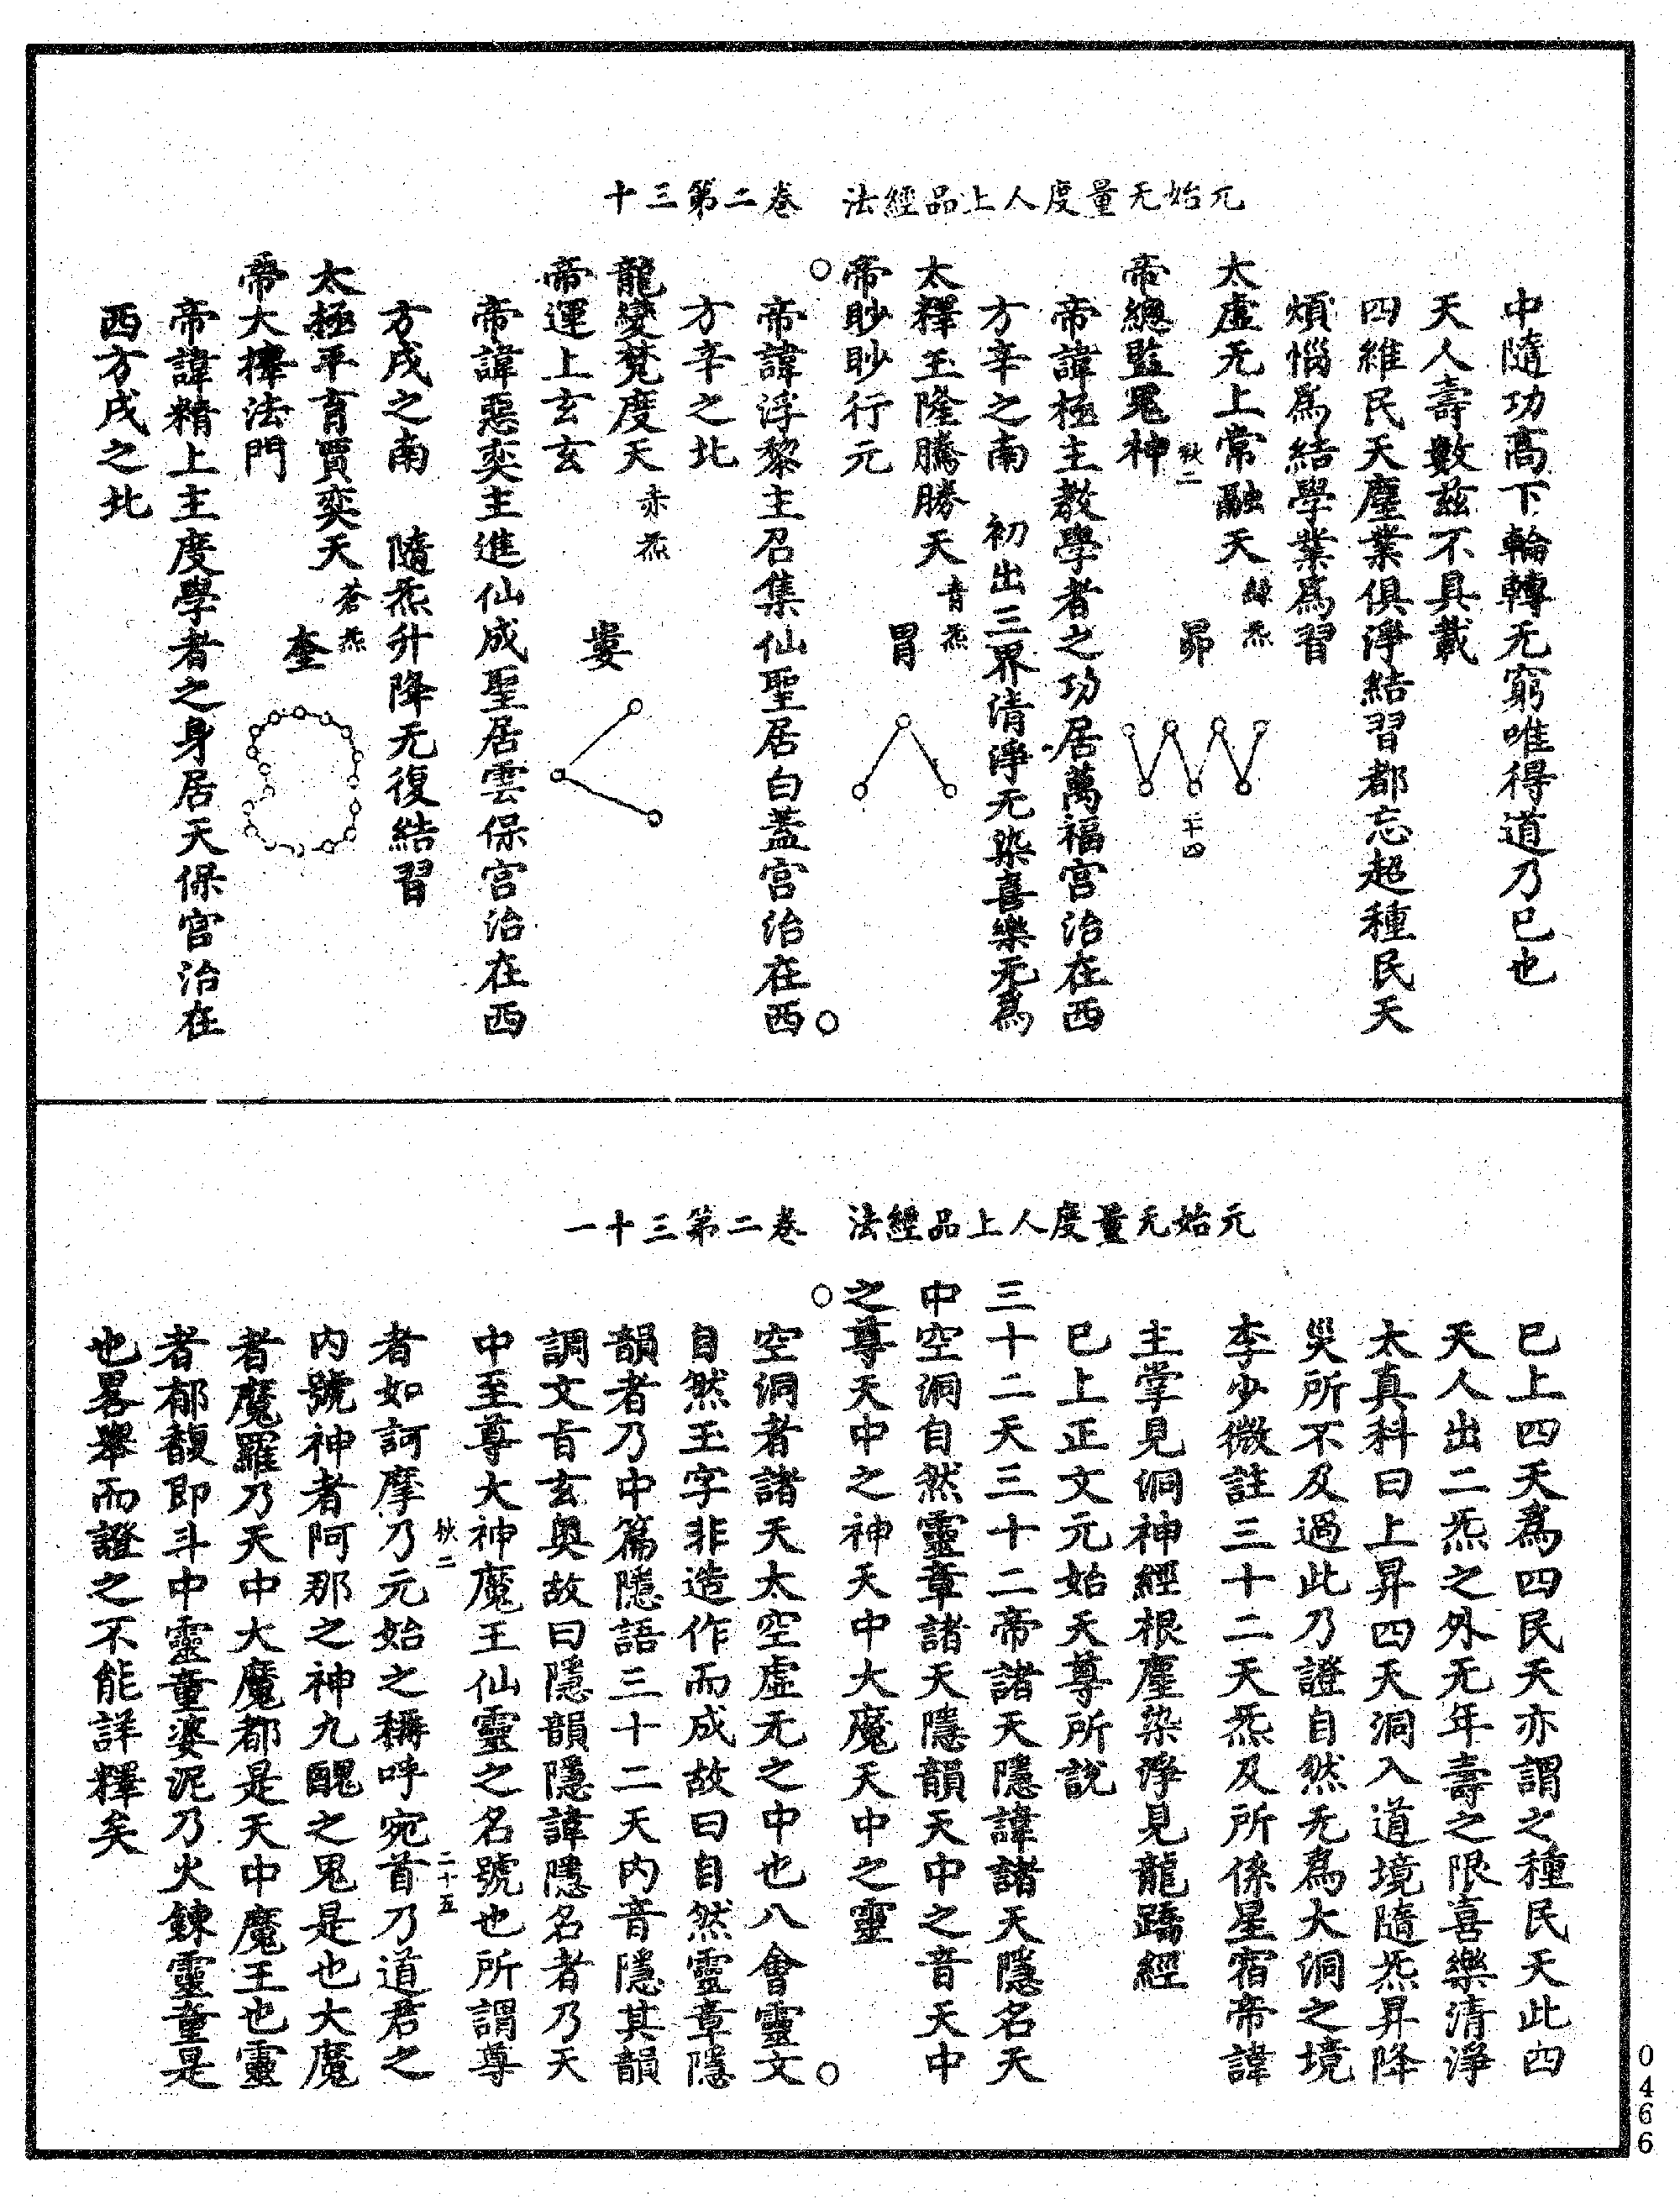 元始无量度人上品經法　卷二第三十
中隨功高下輪轉无窮唯得道乃已也
天人壽數茲不具載
四維民天塵業俱淨結習都忘超種民天
煩惱爲結學業爲習
太虛无上常融天 綠炁 昴
秋二
二十四
帝總監鬼神
帝諱極主教學者之功居萬福宮治在西
方辛之南　初出三界清淨无染喜樂无爲
太釋玉隆騰勝天 青炁 胃
帝眇眇行元
帝諱浮黎主召集仙聖居白蓋宮治在西
方辛之北
龍變梵度天 赤炁 婁
帝運上玄玄
帝諱惡奕主進仙成聖居雲保宮治在西
方戌之南　隨炁升降无復結習
太極平育賈奕天 蒼炁 奎
帝大擇法門
帝諱精上主度學者之身居天保宮治在
西方戌之北
元始无量度人上品經法　卷二第三十一
已上四天爲四民天亦謂之種民天此四
天人出二炁之外无年壽之限喜樂清淨
太真科曰上昇四天洞入道境隨炁昇降
災所不及過此乃證自然无爲大洞之境
李少微註三十二天炁及所係星宿帝諱
主掌見洞神經根塵染淨見龍蹻經
已上正文元始天尊所說
三十二天三十二帝諸天隱諱諸天隱名天
中空洞自然靈章諸天隱韻天中之音天中
之尊天中之神天中大魔天中之靈
空洞者諸天太空虛无之中也八會靈文
自然玉字非造作而成故曰自然靈章隱
韻者乃中篇隱語三十二天内音隱其韻
調文旨玄奥故曰隱韻隱諱隱名者乃天
中至尊大神魔王仙靈之名號也所謂尊
秋二
二十五
者如訶摩乃元始之稱呼宛首乃道君之
内號神者阿那之神九醜之鬼是也大魔
者魔羅乃天中大魔都是天中魔王也靈
者郁馥即斗中靈童婆泥乃火鍊靈童是
也畧舉而證之不能詳釋矣
0466